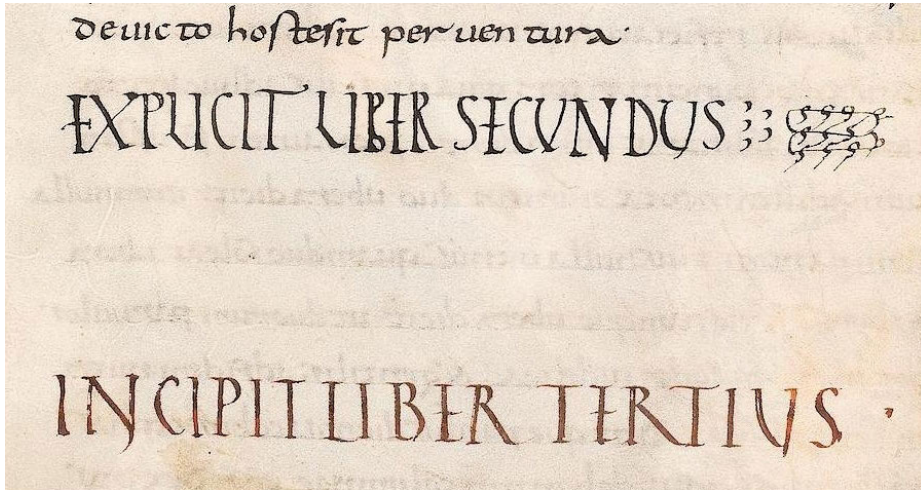 deuicto hostesit per uentura·
EXPLICIT LIBER SECUNDUS
INCIPIT LIBER TERTIUS ·